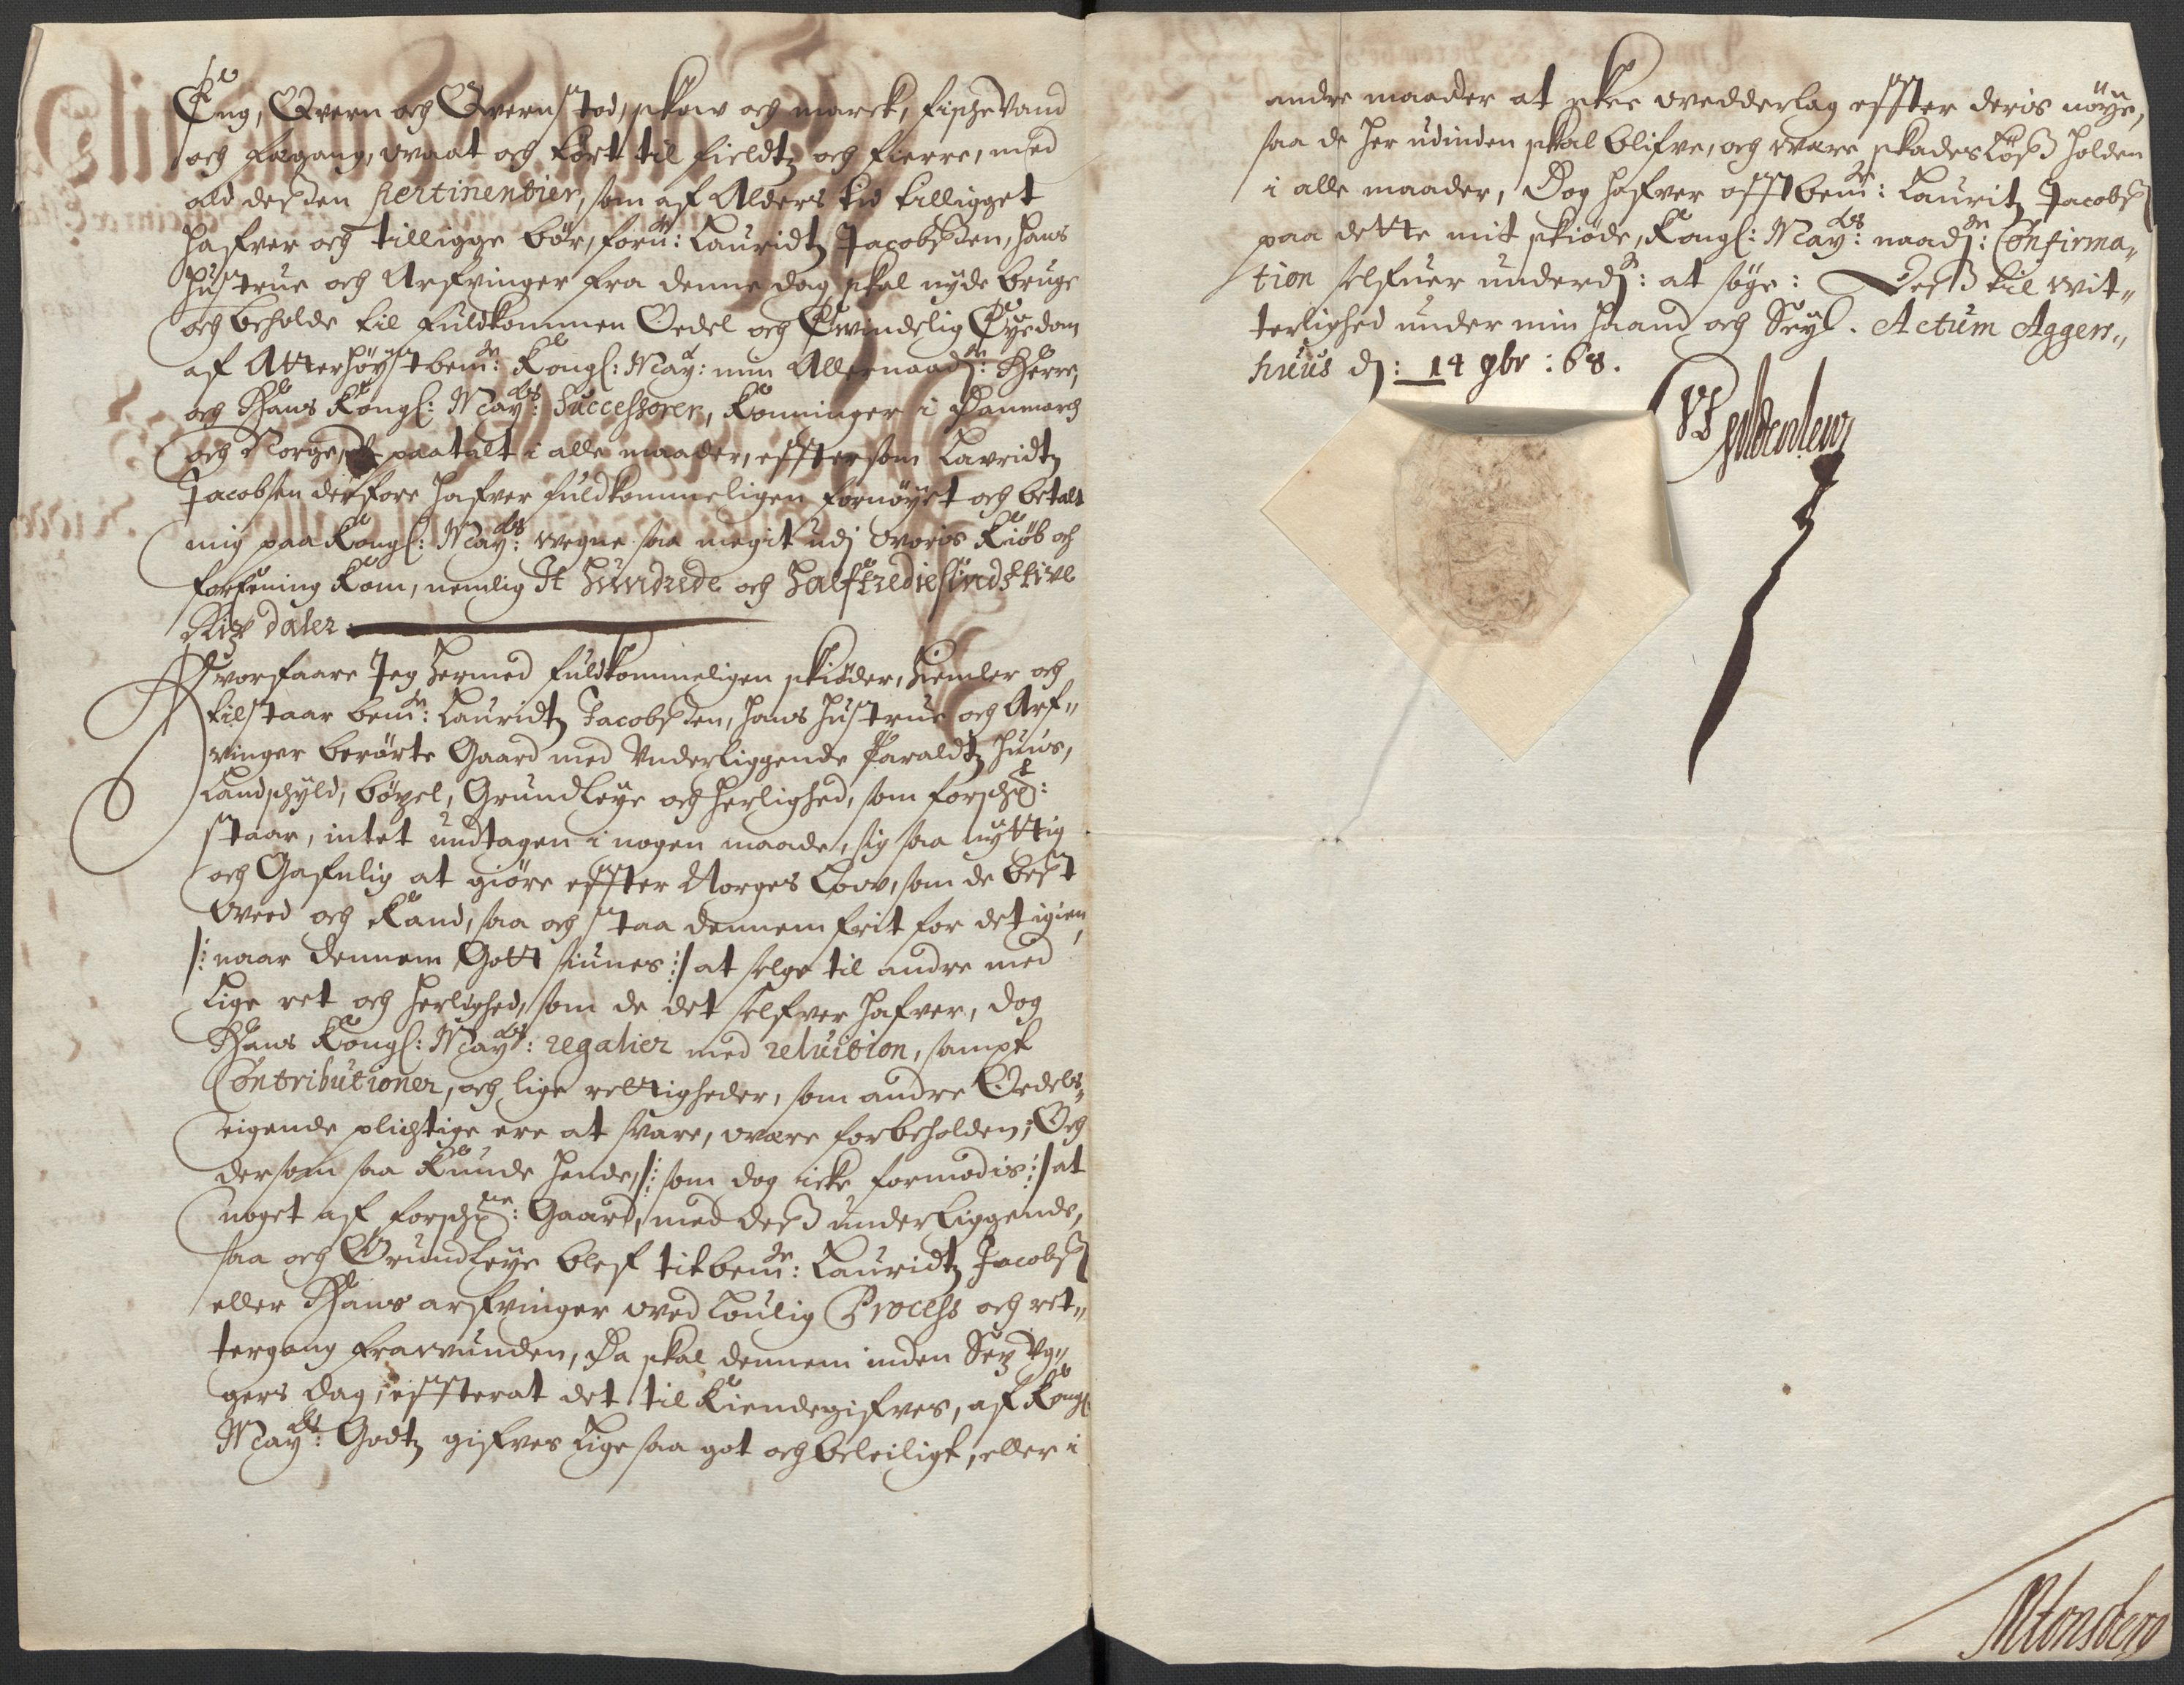 Eng, Qvern och Qvernstod, skow och marck, fischevand
och fægang, vaat og tört til fieldtz och fierre, med
ald desßen pertinentier, som af Alders tid tilligget
hafver och tilligge bör, forne: Lauridtz Jacobsßen, hans
hustrue och Arfvinger fra denne dag skal nyde bruge
och beholde til fuldkommen Oedel och Ewindelig Eyedom
af Atterhöystbemte: Kongl: May: min Allernaadste: Herre,
och Hans Kongl: Mayts: Successorer, Konninger i Danmarch
och Norge, paatalt i alle maader, effttersom Lavridtz
Jacobsen derfore hafver fuldkommeligen fornöyet och betalt
mig paa Kongl: Mayts: vegne saa megit udj voris Kiöb och
forfening kom, nemlig It Hundrede och Halftrediesindstive
Rix daler
Hvorfaare Jeg hermed fuldkommeligen skiöder, hiemler och
tilstaar bemte: Lauridtz Jacobsßen, hans hustrue och Arf„
vinger berörte Gaard med Underliggende Paraldtz huus,
Landschyld, böxel, Grundleye och herlighed, som forschr:
staar, intet undtagen i nogen maade, sig saa nyttig
och Gafnlig at giöre effter Norges Low, som de best
Veed och kand, saa och staa dennem frit for det igien
/: naar dennem Gott siunes :/ at selge til andre med
Lige ret och herlighed, som de det selfver hafver, dog
Hans Kongl: Mayts: regalier med reluition, sampt
Contributioner, och lige rettigheder, som andre Oedels„
eigende plichtige ere at svare, være forbeholden; Och
dersom saa kunde hende, /: som dog icke formodis :/ at
noget af forschne: Gaard, med desß underliggende,
saa och Grundleye blef titbemte: Lauridtz Jacobsß
eller Hans arfvinger ved Loulig Process och ret„
tergang frawunden, Da skal dennem inden Sex Ug„
gers dag, effterat det tilkiendegifves, af Kongl
Mayts: Godtz gifves Lige saa got och beleiligt, eller i
andre maader at skee vedderlag effter deris nöye,
saa de her udinden skal blifve, och være skadeslöß holden
i alle maader, Dog hafver offtbemte: Lauritz Jacobsß
paa dette mit skiöde, Kongl: Mayts: naadste: Confirma„
tion selfver underdst: at söge: Desß til vit„
terlighed under min Haand och Seyl. Actum Aggers„
huus dj: 14 9br: 68.
UF Gyldenlew
MTonsberg